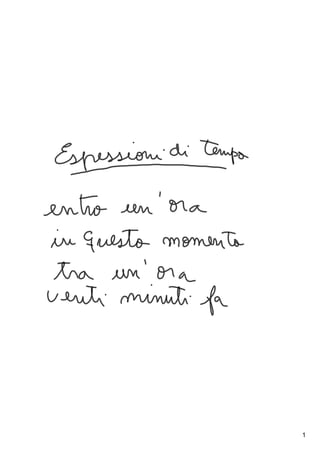 Espressioni di tempo
entro un'ora
in questo momento
tra un'ora
venti minuti fa
1